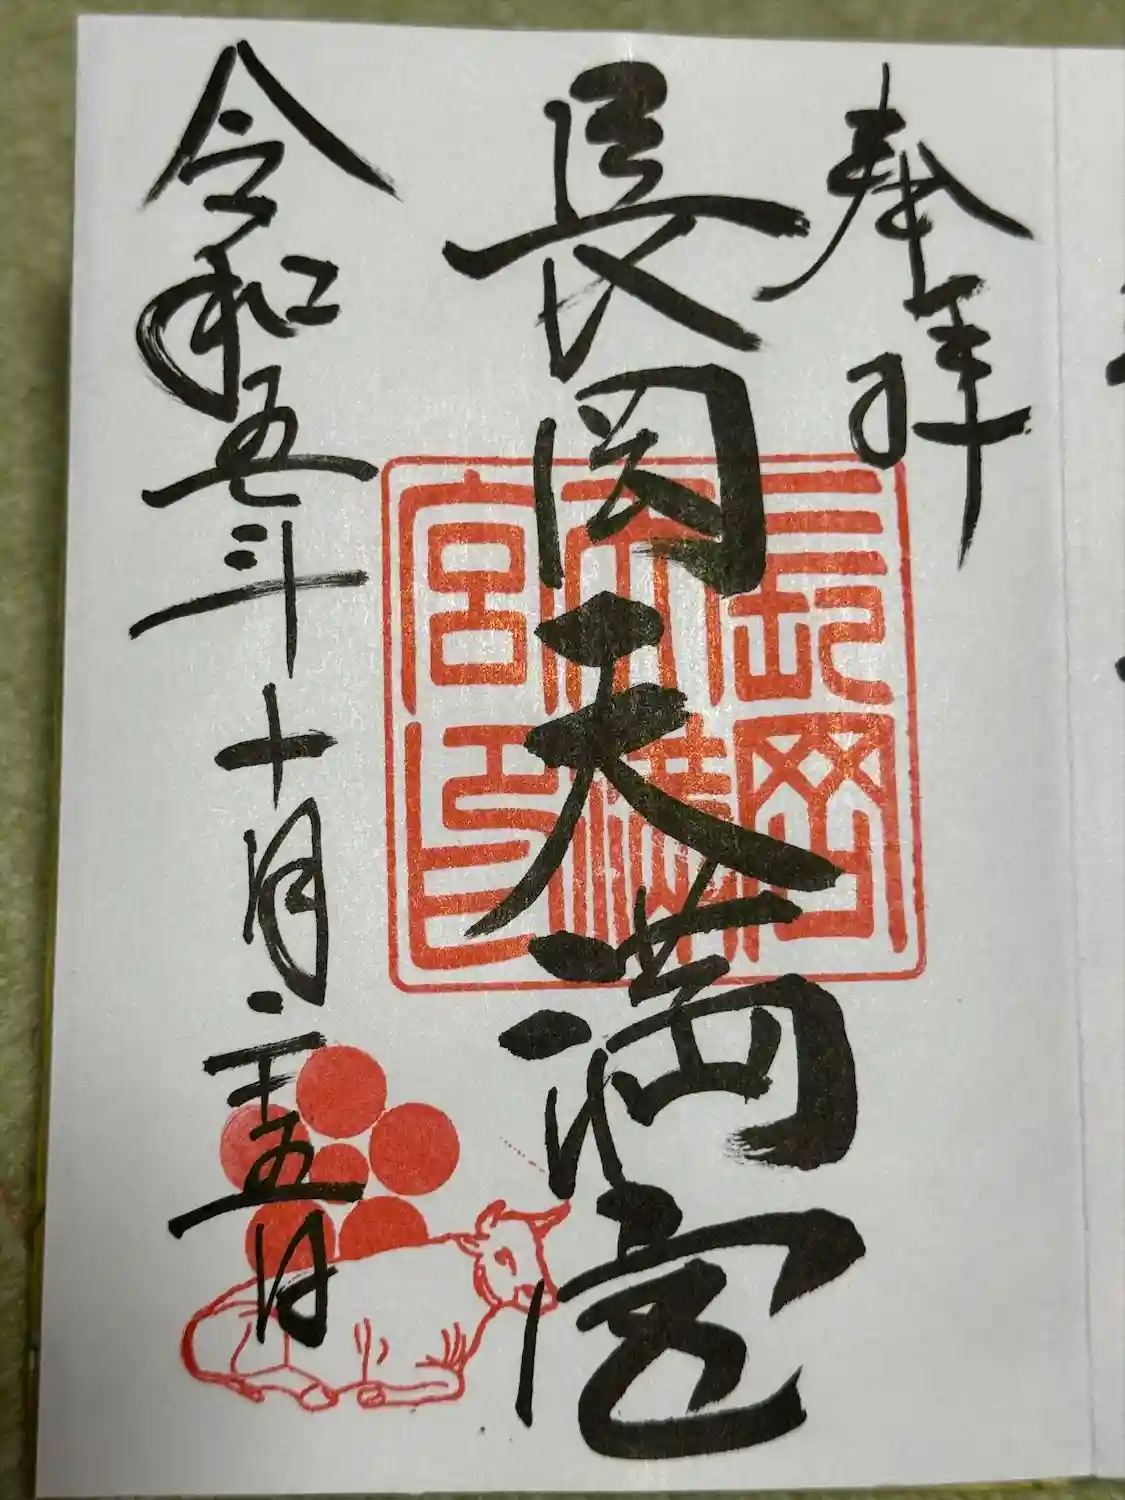 奉拝
長岡天満宮
長岡
天満
宮印
令和五年十月二十五日